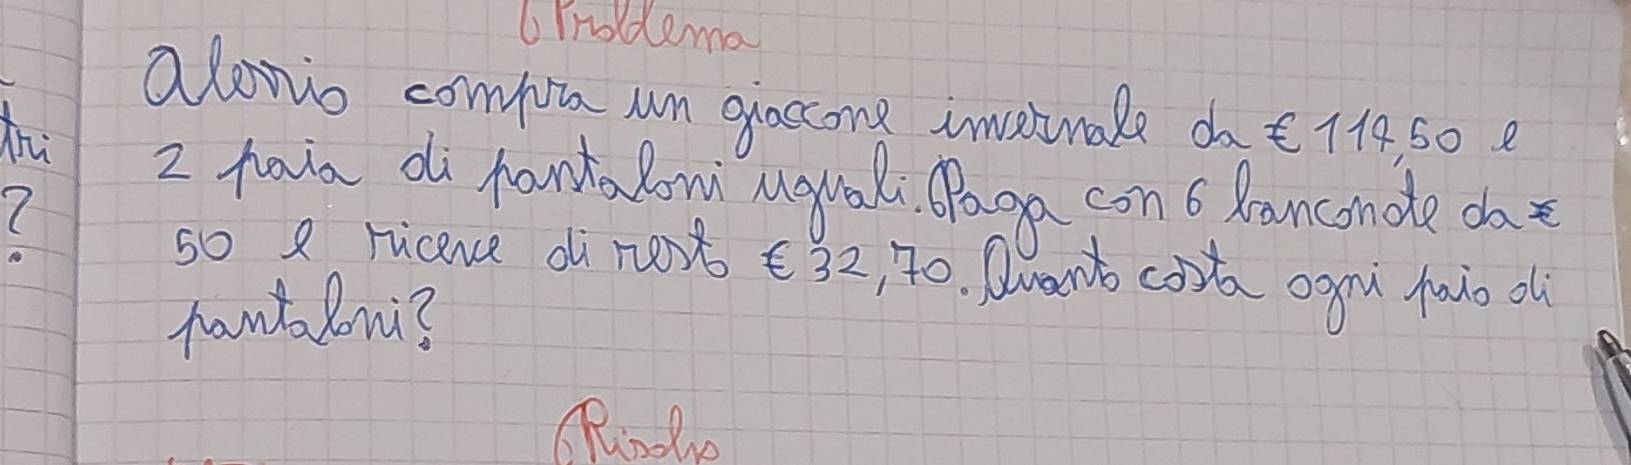 Problema
Alessio compra un giaccone invernale da € 114,50 e
2 paia di pantaloni uguali. Paga con 6 banconote da €
50 e riceve di resto € 32,70. Quanto costa ogni paio di
pantaloni?
tri
?
Risolvo